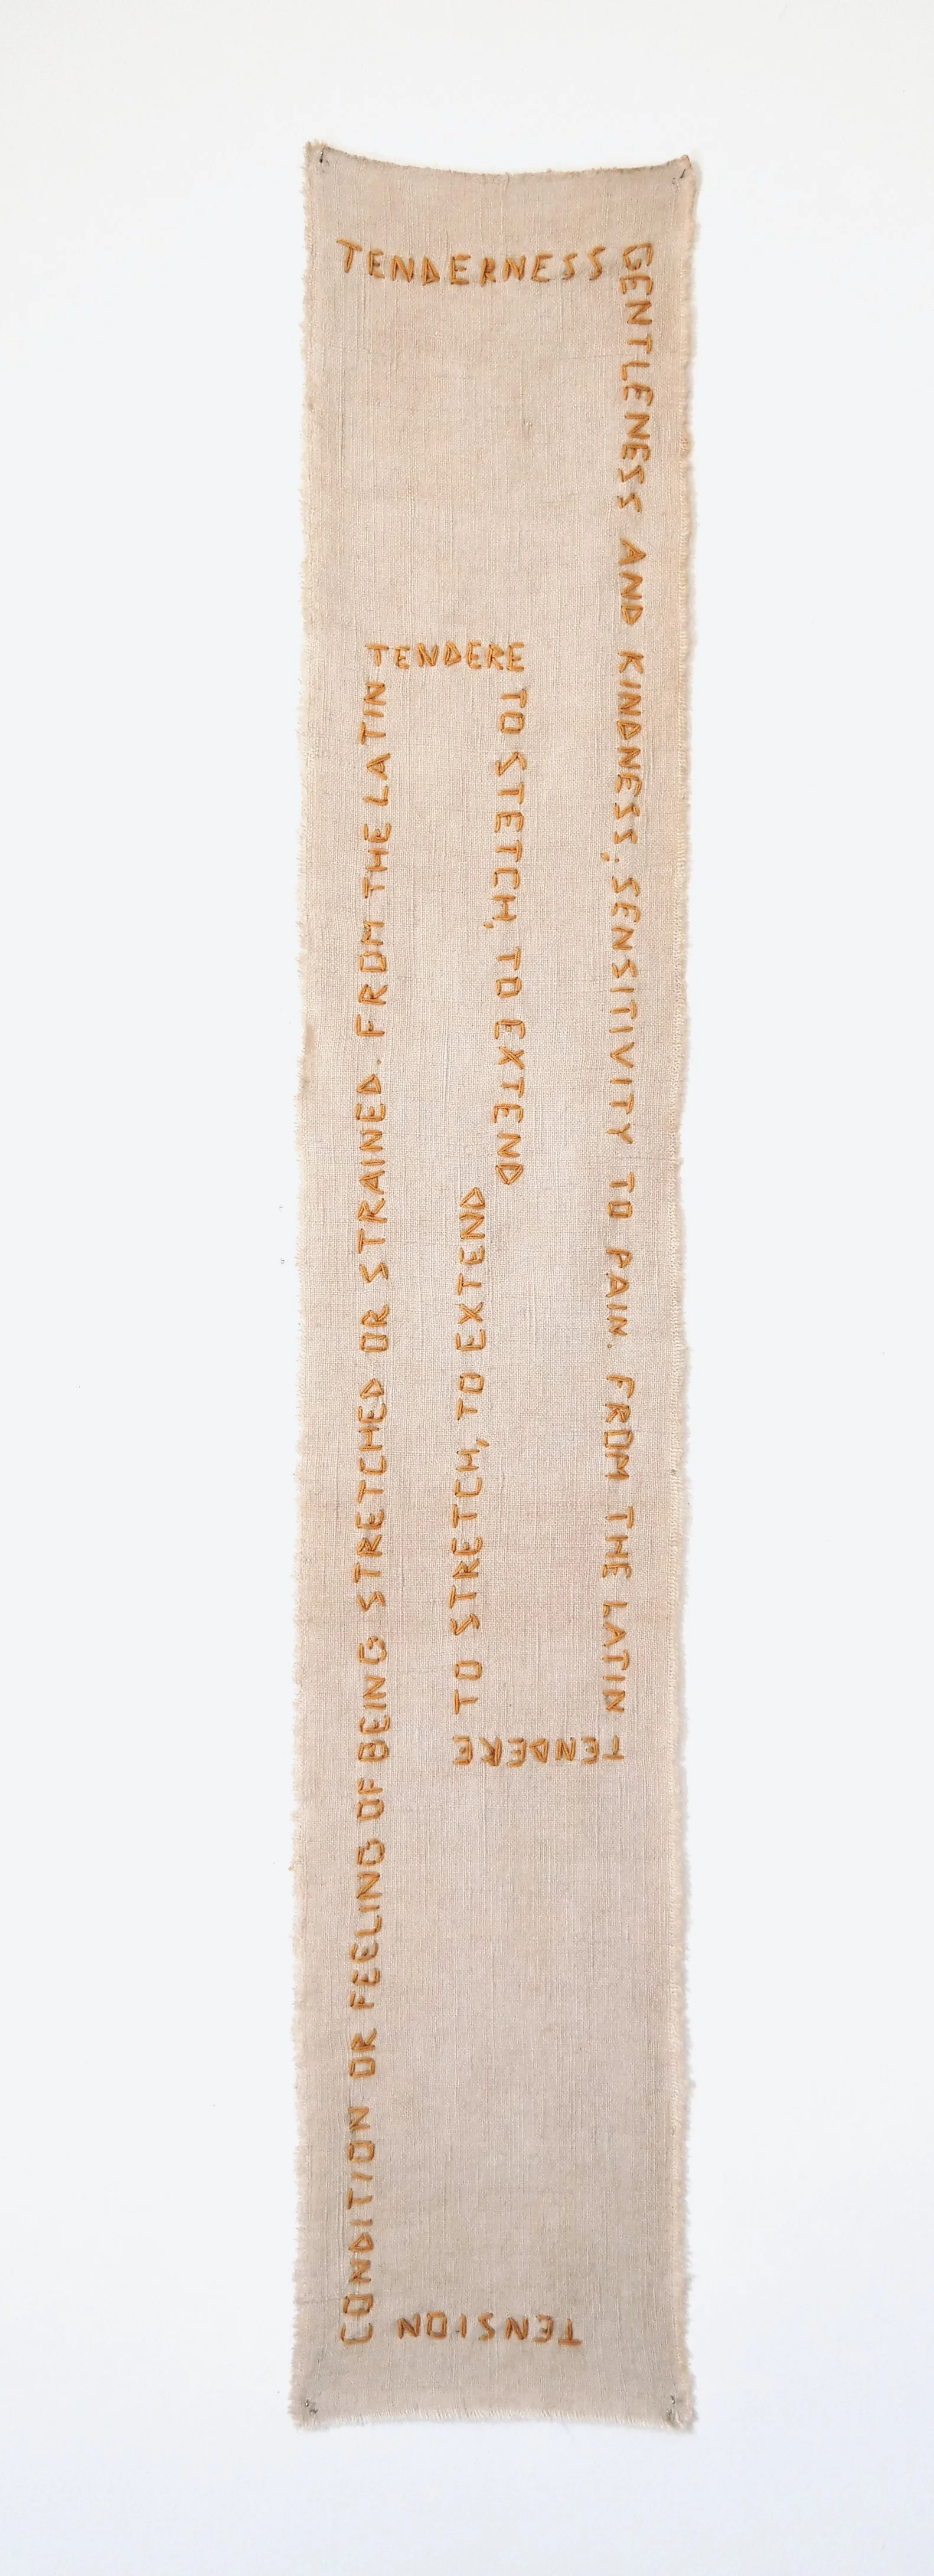 TENDERNESS
GENTLENESS AND KINDNESS, SENSITIVITY TO PAIN. FROM THE LATIN
TENDERE
TO STRETCH, TO EXTEND
TENSION
CONDITION OR FEELING OF BEING STRETCHED OR STRAINED. FROM THE LATIN
TENDERE
TO STETCH, TO EXTEND